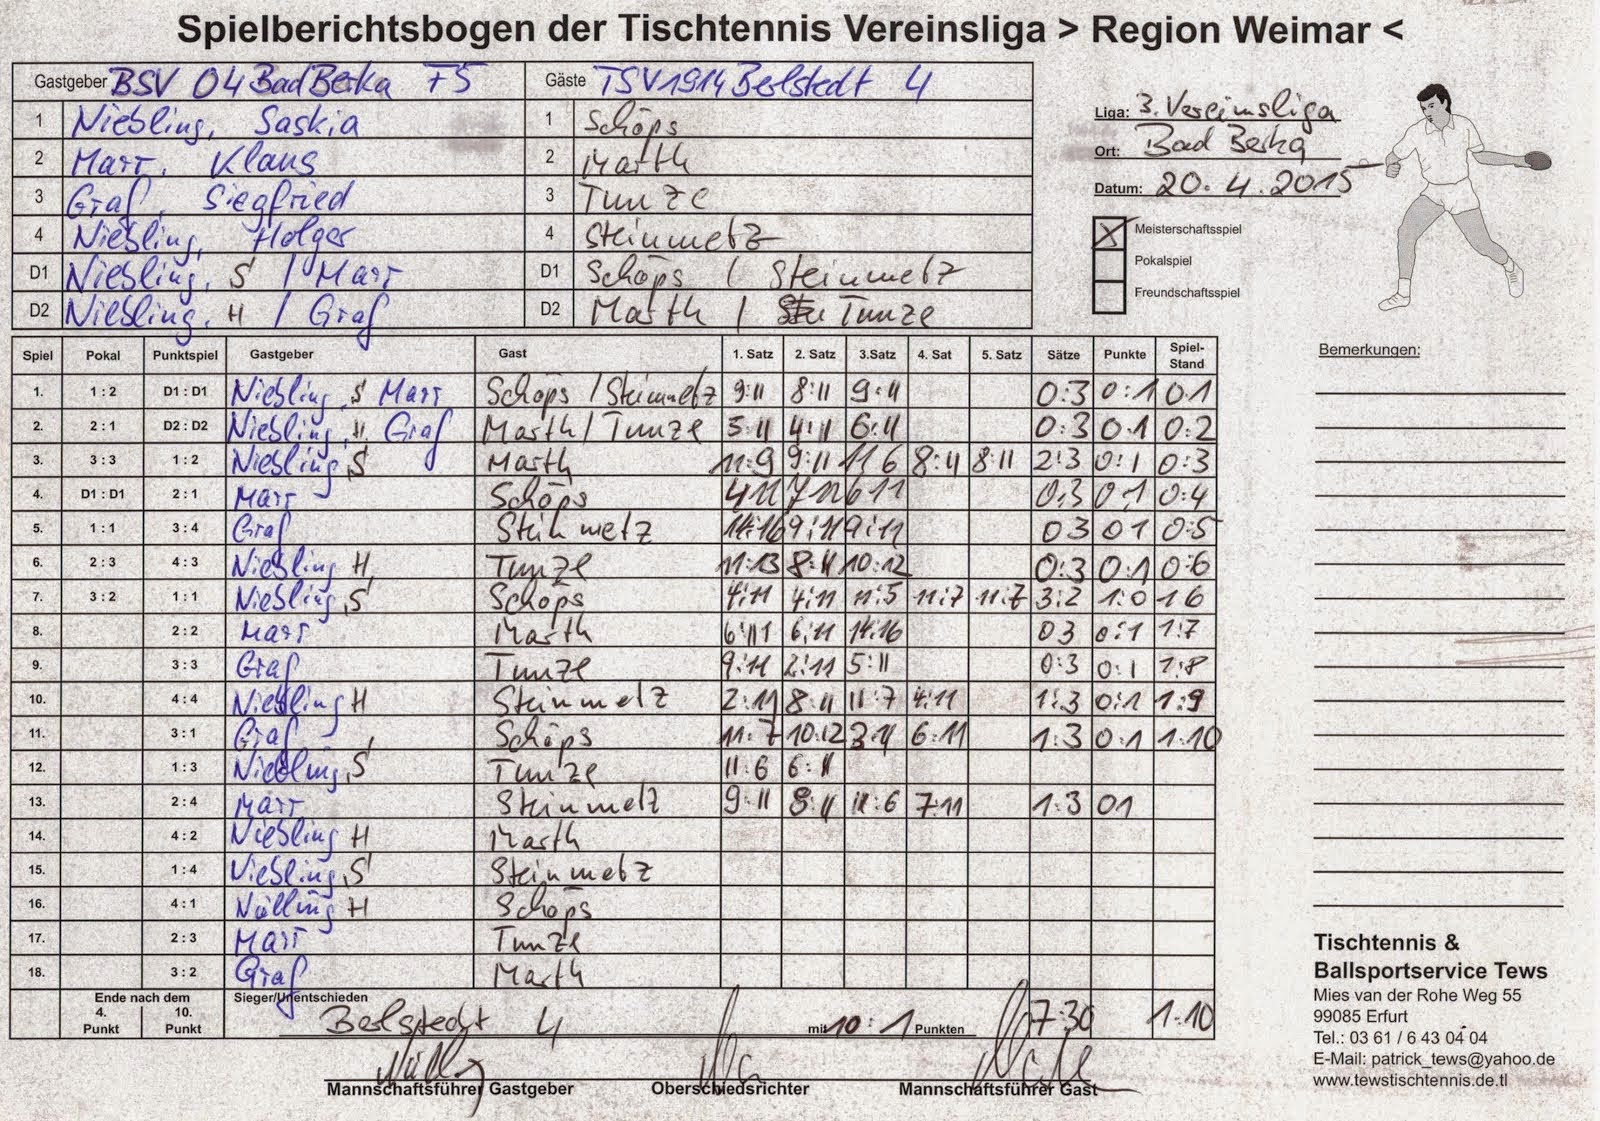 Spielberichtsbogen der Tischtennis Vereinsliga > Region Weimar <
Gastgeber BSV 04 Bad Berka 75 Gäste TSV 1914 Berlstedt 4
1 Niebling, Saskia 1 Schöps
2 Marr, Klaus 2 Marth
3 Graf, Siegfried 3 Tunze
4 Niebling, Holger 4 Steinmetz
D1 Niebling, S / Marr D1 Schöps / Steinmetz
D2 Niebling, H / Graf D2 Marth / Tunze
Liga: 3. Vereinsliga
Ort: Bad Berka
Datum: 20.4.2015
X Meisterschaftsspiel
Pokalspiel
Freundschaftsspiel
Spiel Pokal Punktspiel Gastgeber Gast 1. Satz 2. Satz 3.Satz 4. Sat 5. Satz Sätze Punkte Spiel-Stand
1. 1 : 2 D1 : D1 Niebling, S Marr Schöps / Steinmetz 9:11 8:11 9:11 0:3 0:1 0:1
2. 2 : 1 D2 : D2 Niebling, H Graf Marth / Tunze 5:11 4:11 6:11 0:3 0:1 0:2
3. 3 : 3 1 : 2 Niebling, S Marth 11:9 9:11 11 6 8:11 8:11 2:3 0:1 0:3
4. D1 : D1 2 : 1 Marr Schöps 4 11 7 11 6 11 0:3 0:1 0:4
5. 1 : 1 3 : 4 Graf Steinmetz 14:16 9:11 9:11 0 3 0 1 0:5
6. 2 : 3 4 : 3 Niebling H Tunze 11:13 8:11 10:12 0:3 0:1 0:6
7. 3 : 2 1 : 1 Niebling, S Schöps 4:11 4:11 11:5 11:7 11:7 3:2 1:0 1 6
8. 2 : 2 Marr Marth 6:11 6:11 14:16 0 3 0:1 1:7
9. 3 : 3 Graf Tunze 9:11 2:11 5:11 0:3 0:1 1:8
10. 4 : 4 Niebling H Steinmetz 2:11 8:11 11:7 4:11 1:3 0:1 1:9
11. 3 : 1 Graf Schöps 11:7 10:12 3:11 6:11 1:3 0:1 1:10
12. 1 : 3 Niebling, S Tunze 11:6 6:11
13. 2 : 4 Marr Steinmetz 9:11 8:11 11:6 7:11 1:3 0 1
14. 4 : 2 Niebling H Marth
15. 1 : 4 Niebling, S Steinmetz
16. 4 : 1 Niebling H Schöps
17. 2 : 3 Marr Tunze
18. 3 : 2 Graf Marth
Ende nach dem
4. Punkt 10. Punkt
Sieger/Unentschieden
Berlstedt 4 mit 10 : 1 Punkten 7:30 1:10
Mannschaftsführer Gastgeber Oberschiedsrichter Mannschaftsführer Gast
Bemerkungen:
Tischtennis &
Ballsportservice Tews
Mies van der Rohe Weg 55
99085 Erfurt
Tel.: 03 61 / 6 43 04 04
E-Mail: patrick_tews@yahoo.de
www.tewstischtennis.de.tl